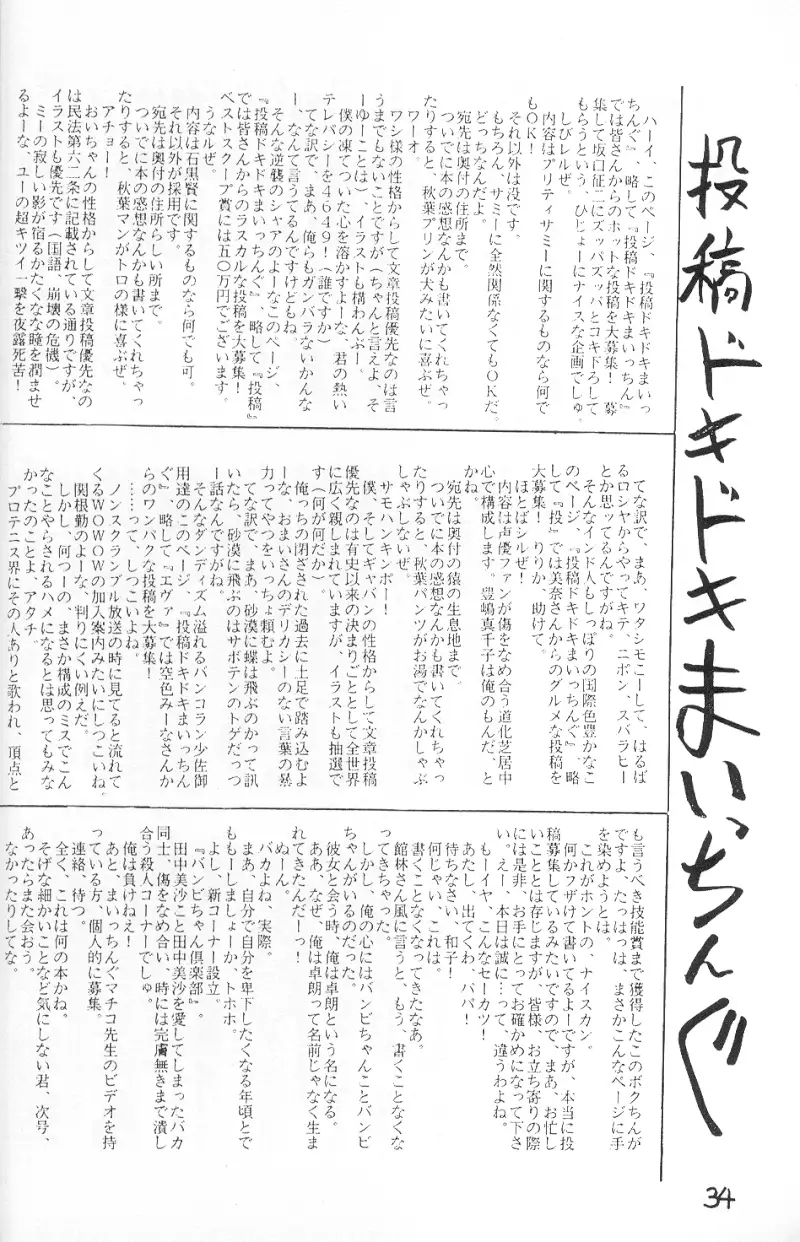 投稿ドキドキまいっちんぐ
ハーイ、このページ、『投稿ドキドキまいっ
ちんぐ』、略して『投稿ドキドキまいっちん』
では皆さんからのホットな投稿を大募集！　募
集して坂口征二にズッパズッパとコキ下ろして
もらうという、ひじょーにナイスな企画でしゅ。
しびレルぜ。
内容はプリティサミーに関するものなら何で
もOK！
それ以外は没です。
もちろん、サミーに全然関係なくてもOKだ。
どっちなんだよ。
宛先は奥付の住所まで。
ついでに本の感想なんかも書いてくれちゃっ
たりすると、秋葉プリンが犬みたいに喜ぶぜ。
ワーオ。
ワシ様の性格からして文章投稿優先なのは言
うまでもないことですが（ちゃんと言えよ、そ
ーゆーことは）、イラストも構わんぶー、
僕の凍てついた心を溶かすよーな、君の熱い
テレパシーを4649！（誰ですか）
てな訳で、まあ、俺らもガンバラないかんな
ー、なんて言うてるんですけどもね。
そんな逆襲のシャアのよーなこのページ、
『投稿ドキドキまいっちんぐ』、略して『投稿』
では皆さんからのラスカルな投稿を大募集！
ベストスクープ賞には五〇万円でございます。
うなるぜ。
内容は石黒賢に関するものなら何でも可。
それ以外が採用です。
宛先は奥付の住所らしい所まで。
ついでに本の感想なんかも書いてくれちゃっ
たりすると、秋葉マンがトロの様に喜ぶぜ。
アチョー！
おいちゃんの性格からして文章投稿優先なの
は民法第六二条に記載されている通りですが、
イラストも優先です（国語、崩壊の危機）。
ミーの寂しい影が宿るかたくなな瞳を潤ませ
るよーな、ユーの超キツイ一撃を夜露死苦！
てな訳で、まあ、ワタシモニーして、はるば
るロシヤからやってキテ、ニポン、スバラヒー
とか思ってるんですがね。
そんなインド人もしっぽりの国際色豊かなこ
のページ、『投稿ドキドキまいっちんぐ』、略
して『投』では美奈さんからのグルメな投稿を
大募集！　りりか、助けて。
ほとばシルぜ！
内容は声優ファンが傷をなめ合う道化芝居中
心で構成します。豊嶋真千子は俺のもんだ、と
かね。
宛先は奥付の猿の生息地まで。
ついでに本の感想なんかも書いてくれちゃっ
たりすると、秋葉パンツがお湯でなんかしゃぶ
しゃぶしないぜ。
サモハンキンポー！
僕、そしてギャバンの性格からして文章投稿
優先なのは有史以来の決まりごととして全世界
に広く親しまれていますが、イラストも抽選で
す（何が何だか）。
俺っちの閉ざされた過去に土足で踏み込むよ
ーな、おまいさんのデリカシーのない言葉の暴
力ってやつをいっちょ頼むよ。
てな訳で、まあ、砂漠に蝶は飛ぶのかって訊
いたら、砂漠に飛ぶのはサボテンのトゲだっつ
ー話なんですがね。
そんなダンディズム溢れるバンコラン少佐御
用達のこのページ、『投稿ドキドキまいっちん
ぐ』、略して『エヴァ』では空色みーなさんか
らのワンパクな投稿を大募集！
……って、しつこいよね。
ノンスクランブル放送の時に見てると流れて
くるWOWOWの加入案内みたいにしつこいね。
関根勤のよーな、判りにくい例えだ。
しかし、何つーの、まさか構成のミスでこん
なことやらされるハメになるとは思ってもみな
かったのことよ、アタチ。
プロテニス界にその人ありと歌われ、頂点と
も言うべき技能賞まで獲得したこのボクちんが
ですよ、たっはっは、まさかこんなページに手
を染めようとは。
これがホントの、ナイスカン。
何かフザけて書いてるよーですが、本当に投
稿募集しているみたいですので、まあ、お忙し
いこととは存じますが、皆様、お立ち寄りの際
には是非、お手にとってお確かめになって下さ
い。えー、本日は誠に…って、違うわよね。
もーイヤ、こんなセーカツ！
あたし、出てくわ、パパ！
待ちなさい、和子！
何じゃい、これは。
書くことなくなってきたなあ。
館林さん風に言うと、もう、書くことなくな
ってきちゃった。
しかし、俺の心にはバンビちゃんことバンビ
ちゃんがいるのだった。
彼女と会う時、俺は卓朗という名になる。
ああ、なぜ、俺は卓朗って名前じゃなく生ま
れてきたんだーっ！
ぬーん。
バカよね、実際。
まあ、自分で自分を卑下したくなる年頃とで
ももーしましょーか、トホホ。
よし、新コーナー設立。
『バンビちゃん倶楽部』。
田中美沙こと田中美沙を愛してしまったバカ
同士、傷をなめ合い、時には完膚無きまで潰し
合う殺人コーナーでしゅ。
俺は負けねえ！
あと、まいっちんぐマチコ先生のビデオを持
っている方、個人的に募集。
連絡、待つ。
全く、これは何の本かね。
そげな細かいことなど気にしない君、次号、
あったらまた会おう。
なかったりしてな。
34